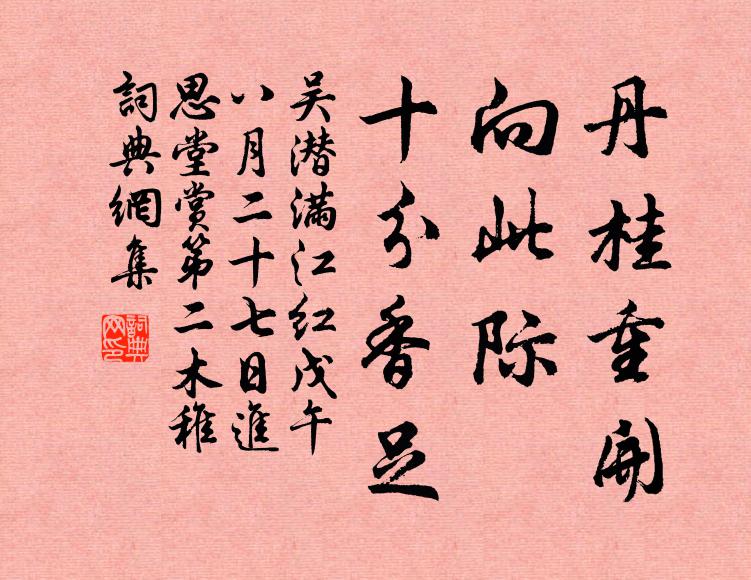 丹桂重開
向此際
十分香足
吴潜滿江红戊午
八月二十七日進
思堂賞第二木稚
詞典網集
詞典
网印